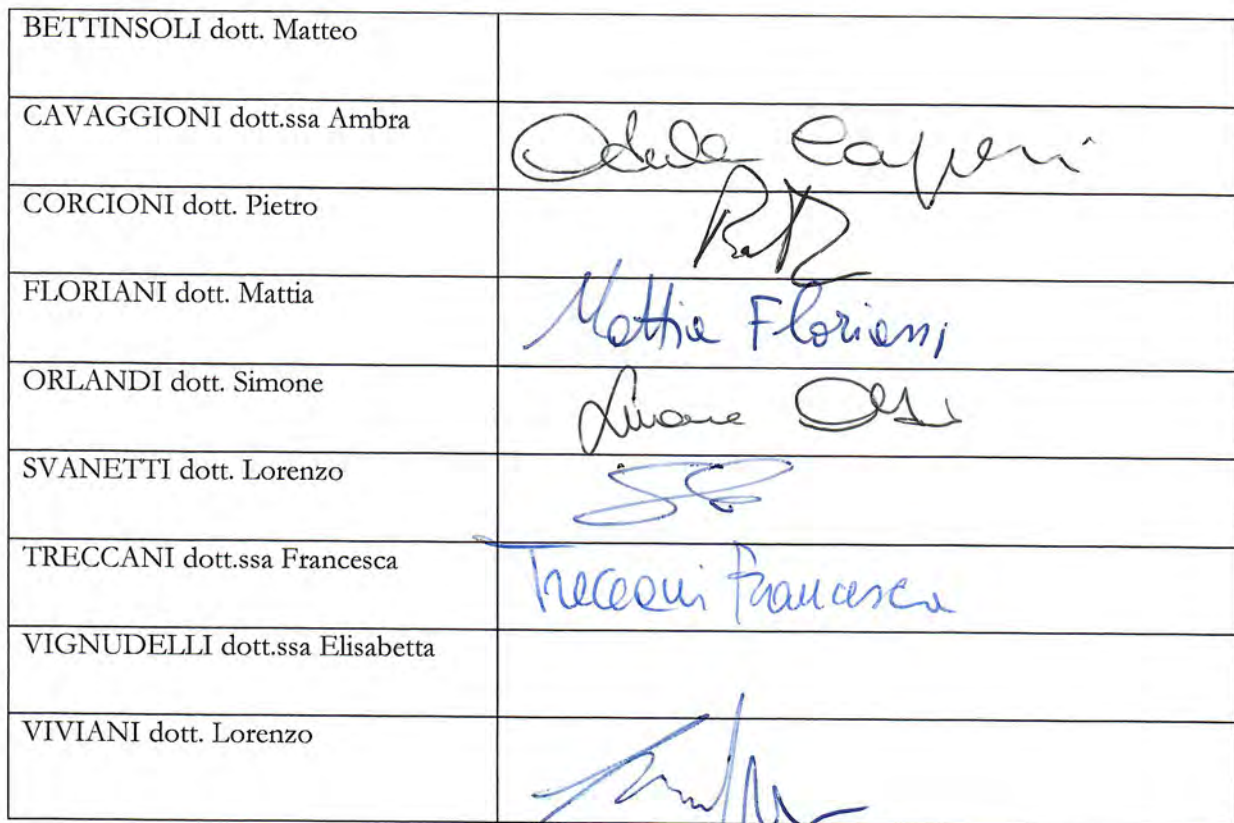 BETTINSOLI dott. Matteo
CAVAGGIONI dott.ssa Ambra
CORCIONI dott. Pietro
FLORIANI dott. Mattia
Mattia Floriani
ORLANDI dott. Simone
Simone
SVANETTI dott. Lorenzo
TRECCANI dott.ssa Francesca
Treccani Francesca
VIGNUDELLI dott.ssa Elisabetta
VIVIANI dott. Lorenzo